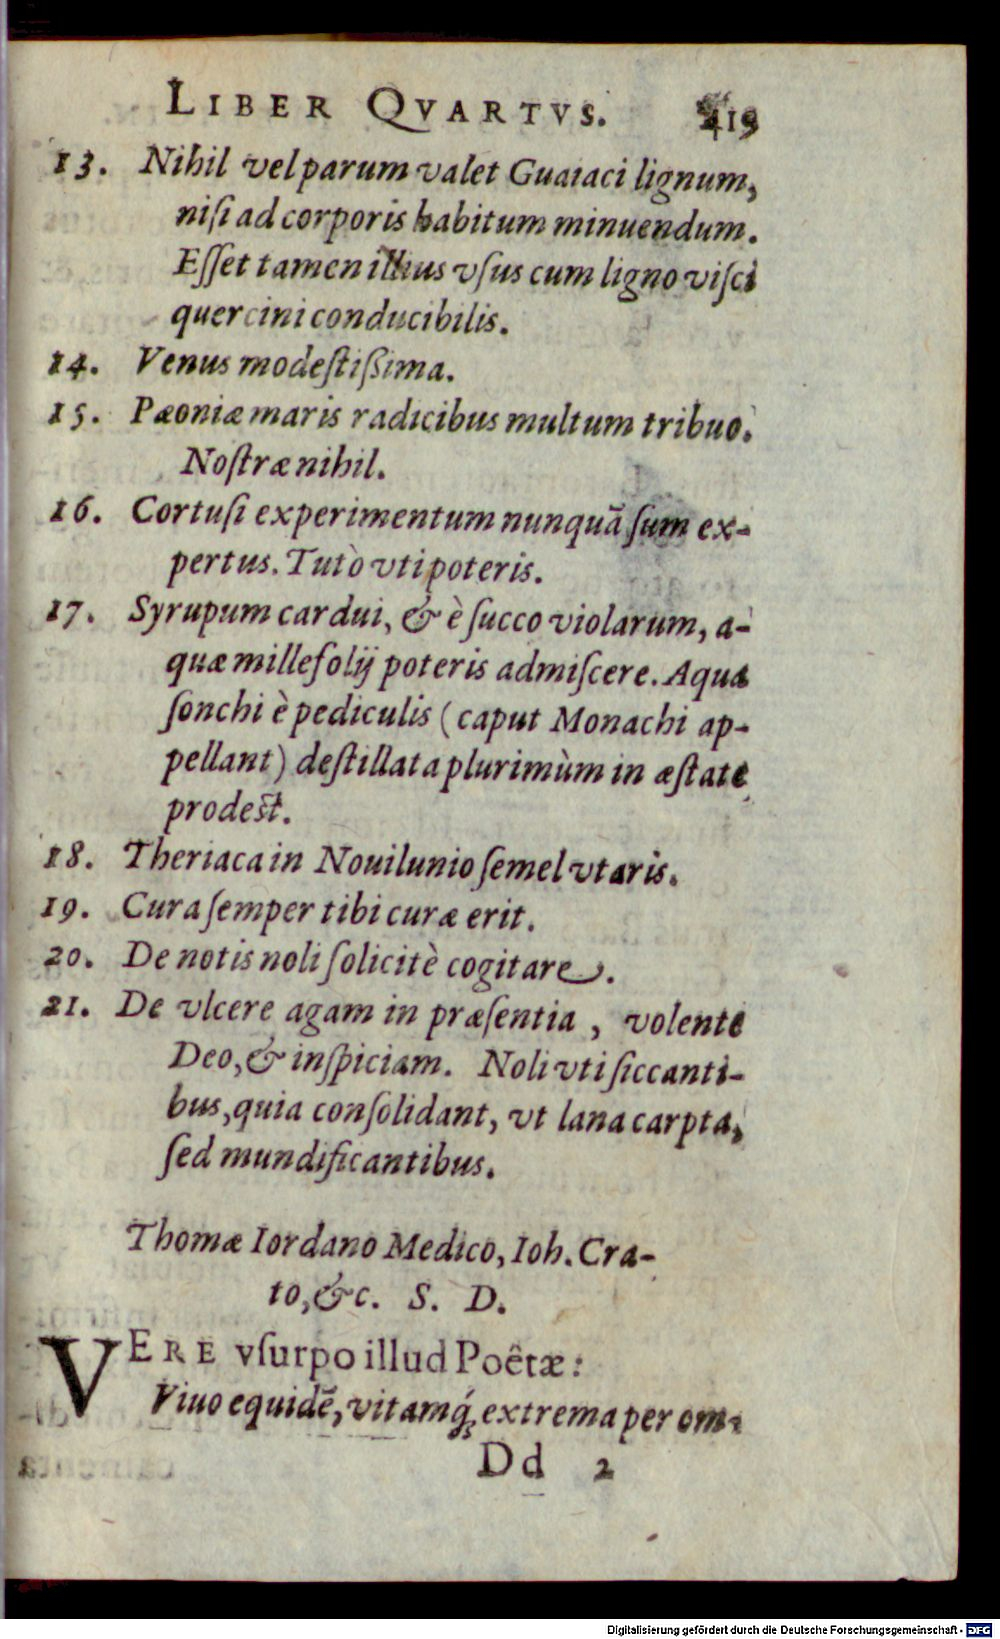 LIBER QVARTVS. 419
13. Nihil vel parum valet Guaiaci lignum,
niſi ad corporis habitum minuendum.
Eſſet tamen illius vſus cum ligno viſci
quercini conducibilis.
14. Venus modeſtiſſima.
15. Pæoniæ maris radicibus multum tribuo.
Noſtræ nihil.
16. Cortuſi experimentum nunquã ſum ex-
pertus. Tutò vti poteris.
17. Syrupum cardui, & è ſucco violarum, a-
quæ millefolij poteris admiſcere. Aqua
ſonchi è pediculis (caput Monachi ap-
pellant) deſtillata plurimùm in æſtate
prodeſt.
18. Theriaca in Nouilunio ſemel vtaris.
19. Cura ſemper tibi curæ erit.
20. De notis noli ſolicitè cogitare.
21. De vlcere agam in præſentia, volente
Deo, & inſpiciam. Noli vti ſiccanti-
bus, quia conſolidant, vt lana carpta,
ſed mundificantibus.
Thomæ Iordano Medico, Ioh. Cra-
to, &c. S. D.
VERE vſurpo illud Poêtæ:
Viuo equidẽ, vitamq́; extrema per om-
Dd 2
Digitalisierung gefördert durch die Deutsche Forschungsgemeinschaft - DFG